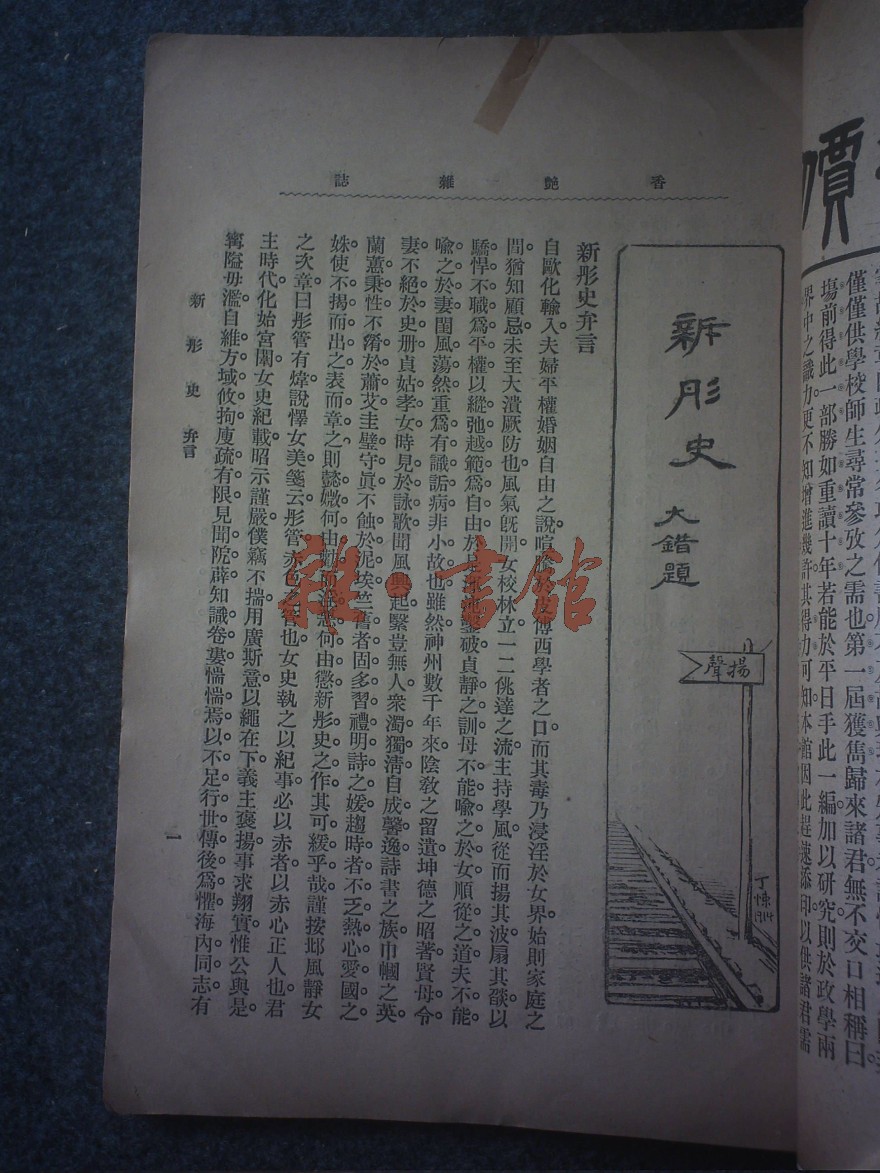 香艷雜誌
新彤史
大錯題
揚聲
丁悚
1914
新彤史弁言
自歐化輸入夫婦平權婚姻自由之說喧騰於皮傅西學者之口而其毒乃浸淫於女界始則家庭之
間猶知顧忌未至大潰厥防也風氣旣開女校林立一二佻達之流主持學風從而揚其波扇其燄以
驕悍不職爲平權以縱弛越範爲自由於是混沌鑿破貞靜之訓母不能喩之於女順從之道夫不能
喩之於妻閨風蕩然重爲有識詬病非小故也雖然神州數千年來陰敎之留遺坤德之昭著賢母令
妻不絕於史册貞姑孝女時見於詠歌聞風興起繄豈無人衆濁獨淸自成馨逸詩書之族巾幗之英
蘭蕙秉性不淆於蕭艾圭璧守眞不蝕於泥埃竺舊者固多習禮明詩之媛趨時者不乏熱心愛國之
姝使不揭而出之表而章之則懿媺何由勸而淫慝何由懲新彤史之作其可緩乎哉謹按邶風靜女
之次章曰彤管有煒說懌女美箋云彤管赤色之管也女史執之以紀事必以赤者以赤心正人也君
主時代化始宮闈女史紀載昭示謹嚴僕竊不揣用廣斯意以繩在下義主褒揚事求翔實惟公與是
寗隘毋濫自維方域攸拘庋疏有限見聞院薜知識卷婁惴惴焉以不足行世傳後爲懼海內同志有
新彤史 弁言
一
價
僅僅供學校師生尋常參攷之需也第一屆獲雋歸來諸君無不交口相稱曰
塲前得此一部勝如重讀十年若能於平日手此一編加以研究則於政學兩
界中之識力更不知增進幾許其得力可知本館因此趕速添印以供諸君需
雜·書館